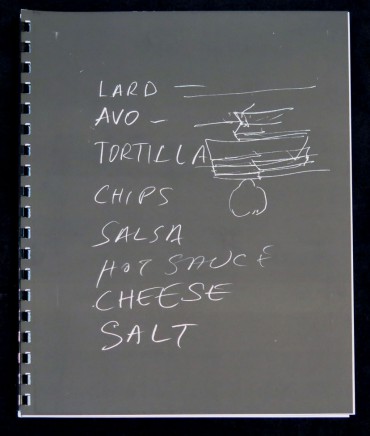 LARD —
AVO –
TORTILLA
CHIPS
SALSA
HOT SAUCE
CHEESE
SALT